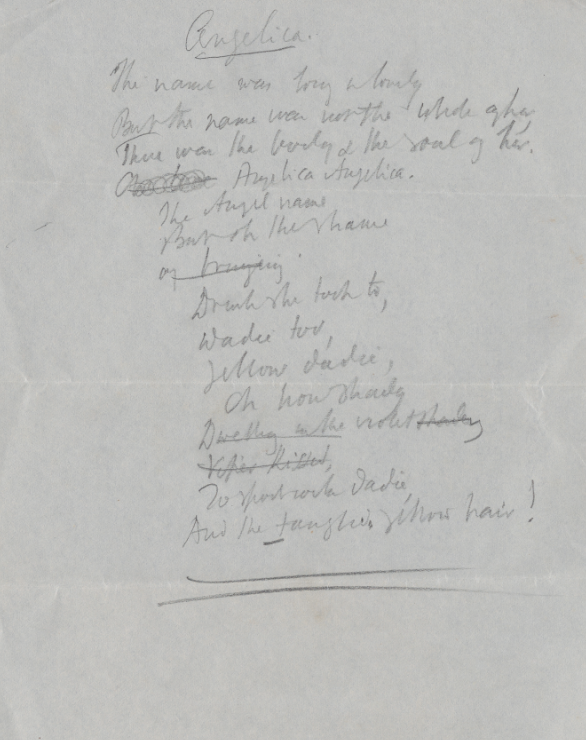 Angelica.
The name was long & lovely
But the name was not the whole of her
There was the body & the soul of her.
Angelica Angelica.
The Angel name
But oh the shame
of
Drink she took to,
Wadie too,
Yellow dadie,
Oh how shady
Dwelling in the violet shadey
To sport with dadie,
And the tangled yellow hair!